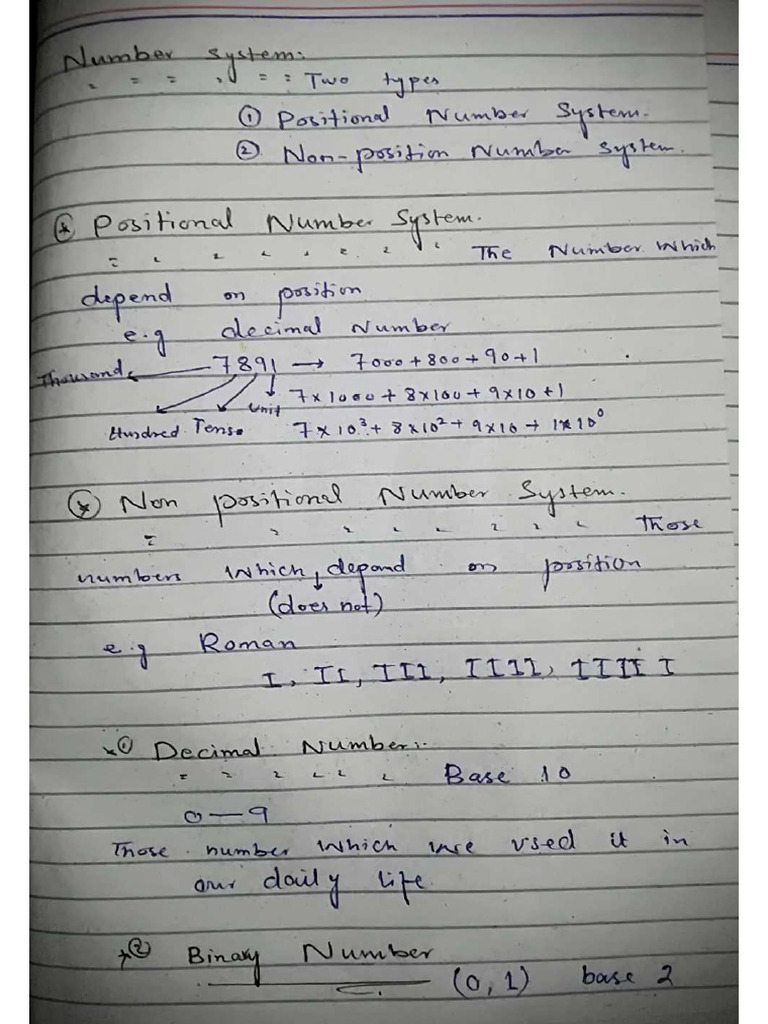 Number System:
Two types
① Positional Number System.
② Non-position Number System.
* Positional Number System.
The Number which
depend on position
e.g decimal Number
Thousand 7891 → 7000+800+90+1
Unit 7×1000+8×100+9×10+1
Hundred Tens 7×10³+8×10²+9×10+1×10⁰
* Non positional Number System.
Those
numbers which, depand on position
(does not)
e.g Roman
I, II, III, IIII, IIIII
① Decimal Number:-
Base 10
0—9
Those number which we used it in
our daily life.
② Binary Number
(0,1) base 2